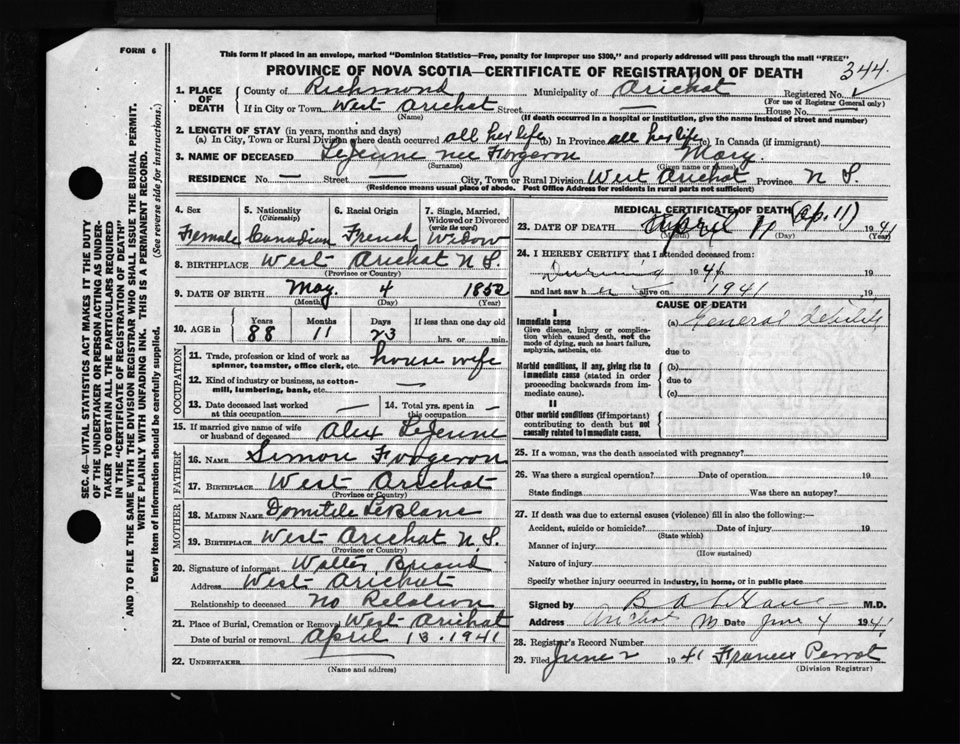 FORM 6
This form if placed in an envelope, marked "Dominion Statistics—Free, penalty for improper use $300," and properly addressed will pass through the mail "FREE"
PROVINCE OF NOVA SCOTIA—CERTIFICATE OF REGISTRATION OF DEATH
344
1. PLACE OF DEATH
County of Richmond Municipality of Arichat Registered No.
(For use of Registrar General only)
If in City or Town West Arichat Street — House No. —
(Name) (If death occurred in a hospital or institution, give the name instead of street and number)
2. LENGTH OF STAY (in years, months and days)
(a) In City, Town or Rural Division where death occurred all her life (b) In Province all her life (c) In Canada (if immigrant)
3. NAME OF DECEASED LeJeune nee Forgeron Mary.
(Surname) (Given name or names)
RESIDENCE No. — Street — City, Town or Rural Division West Arichat Province N S.
(Residence means usual place of abode. Post Office Address for residents in rural parts not sufficient)
4. Sex
Female
5. Nationality
(Citizenship)
Canadian
6. Racial Origin
French
7. Single, Married, Widowed or Divorced
(write the word)
Widow
8. BIRTHPLACE West Arichat N S.
(Province or Country)
9. DATE OF BIRTH May 4 1852
(Month) (Day) (Year)
10. AGE in
Years Months Days If less than one day old
88 11 23 hrs. or min.
OCCUPATION
11. Trade, profession or kind of work as spinner, teamster, office clerk, etc. house wife
12. Kind of industry or business, as cotton-mill, lumbering, bank, etc. —
13. Date deceased last worked at this occupation —
14. Total yrs. spent in this occupation —
15. If married give name of wife or husband of deceased Alex LeJeune
FATHER
16. NAME Simon Forgeron
17. BIRTHPLACE West Arichat
(Province or Country)
MOTHER
18. MAIDEN NAME Domitile LeBlanc
19. BIRTHPLACE West Arichat N. S.
(Province or Country)
20. Signature of informant Walter Briand
Address West Arichat
Relationship to deceased No Relation
21. Place of Burial, Cremation or Removal West Arichat
Date of burial or removal April 13. 1941
22. UNDERTAKER
(Name and address)
MEDICAL CERTIFICATE OF DEATH (Ap. 11)
23. DATE OF DEATH April 11 1941
(Month) (Day) (Year)
24. I HEREBY CERTIFY that I attended deceased from:
During 1941 19
and last saw her alive on 1941 19
CAUSE OF DEATH
I
Immediate cause
Give disease, injury or complication which caused death, not the mode of dying, such as heart failure, asphyxia, asthenia, etc.
(a) General Debility
due to
Morbid conditions, if any, giving rise to immediate cause (stated in order proceeding backwards from immediate cause).
(b)
due to
(c)
II
Other morbid conditions (if important) contributing to death but not causally related to immediate cause.
25. If a woman, was the death associated with pregnancy?
26. Was there a surgical operation? Date of operation 19
State findings Was there an autopsy?
27. If death was due to external causes (violence) fill in also the following:—
Accident, suicide or homicide? Date of injury 19
(State which)
Manner of injury
(How sustained)
Nature of injury
Specify whether injury occurred in industry, in home, or in public place
Signed by B A LeBlanc M.D.
Address Arichat Date June 4 1941
28. Registrar's Record Number
29. Filed June 2 1941 Frances Perrot
(Division Registrar)
SEC. 46—VITAL STATISTICS ACT MAKES IT THE DUTY
OF THE UNDERTAKER OR PERSON ACTING AS UNDER-
TAKER TO OBTAIN ALL THE PARTICULARS REQUIRED
IN THE "CERTIFICATE OF REGISTRATION OF DEATH"
AND TO FILE THE SAME WITH THE DIVISION REGISTRAR WHO SHALL ISSUE THE BURIAL PERMIT.
WRITE PLAINLY WITH UNFADING INK. THIS IS A PERMANENT RECORD.
Every item of information should be carefully supplied. (See reverse side for instructions.)